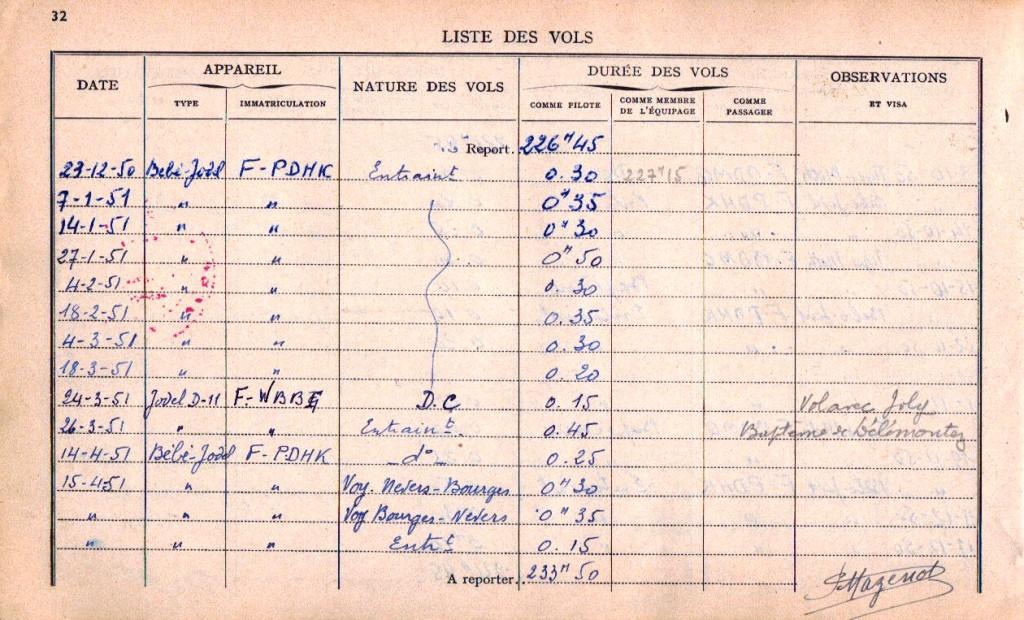 32
LISTE DES VOLS
DATE APPAREIL NATURE DES VOLS DURÉE DES VOLS OBSERVATIONS
TYPE IMMATRICULATION COMME PILOTE COMME MEMBRE DE L'ÉQUIPAGE COMME PASSAGER ET VISA
Report. 226H45
23-12-50 Bébé-Jodel F-PDHK Entraint 0.30 227H15
7-1-51 " " 0H35
14-1-51 " " 0H30
27-1-51 " " 0H50
4-2-51 " " 0.30
18-2-51 " " 0.35
4-3-51 " " 0.30
18-3-51 " " 0.20
24-3-51 Jodel D-11 F-WBBF D.C 0.15 Vol avec Joly
26-3-51 " " Entraint. 0.45 Baptême de Délémontez
14-4-51 Bébé-Jodel F-PDHK _do_ 0.25
15-4-51 " " Voy. Nevers-Bourges 0H30
" " " Voy Bourges-Nevers 0H35
" " " Entrt 0.15
A reporter.. 233H50